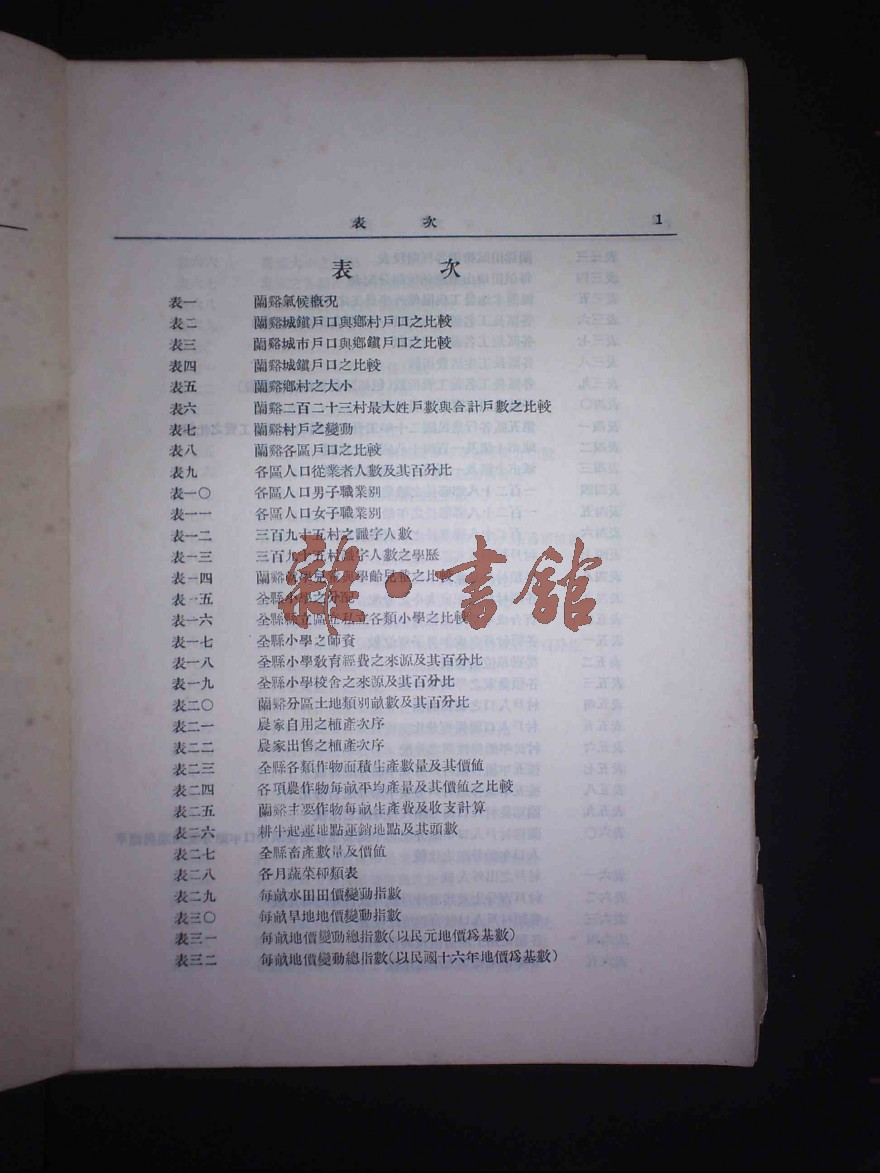 表 次 1
表 次
表一 蘭谿氣候槪況
表二 蘭谿城鎭戶口與鄉村戶口之比較
表三 蘭谿城市戶口與鄉鎭戶口之比較
表四 蘭谿城鎭戶口之比較
表五 蘭谿鄉村之大小
表六 蘭谿二百二十三村最大姓戶數與合計戶數之比較
表七 蘭谿村戶之變動
表八 蘭谿各區戶口之比較
表九 各區人口從業者人數及其百分比
表一〇 各區人口男子職業別
表一一 各區人口女子職業別
表一二 三百九十五村之識字人數
表一三 三百九十五村識字人數之學歷
表一四 蘭谿就學兒童與學齡兒童之比較
表一五 全縣小學之分配
表一六 全縣縣立區立私立各類小學之比較
表一七 全縣小學之師資
表一八 全縣小學敎育經費之來源及其百分比
表一九 全縣小學校舍之來源及其百分比
表二〇 蘭谿分區土地類別畝數及其百分比
表二一 農家自用之植產次序
表二二 農家出售之植產次序
表二三 全縣各類作物面積生產數量及其價値
表二四 各項農作物每畝平均產量及其價値之比較
表二五 蘭谿主要作物每畝生產費及收支計算
表二六 耕牛起運地點運銷地點及其頭數
表二七 全縣畜產數量及價値
表二八 各月蔬菜種類表
表二九 每畝水田田價變動指數
表三〇 每畝旱地地價變動指數
表三一 每畝地價變動總指數(以民元地價爲基數)
表三二 每畝地價變動總指數(以民國十六年地價爲基數)
雜·書館